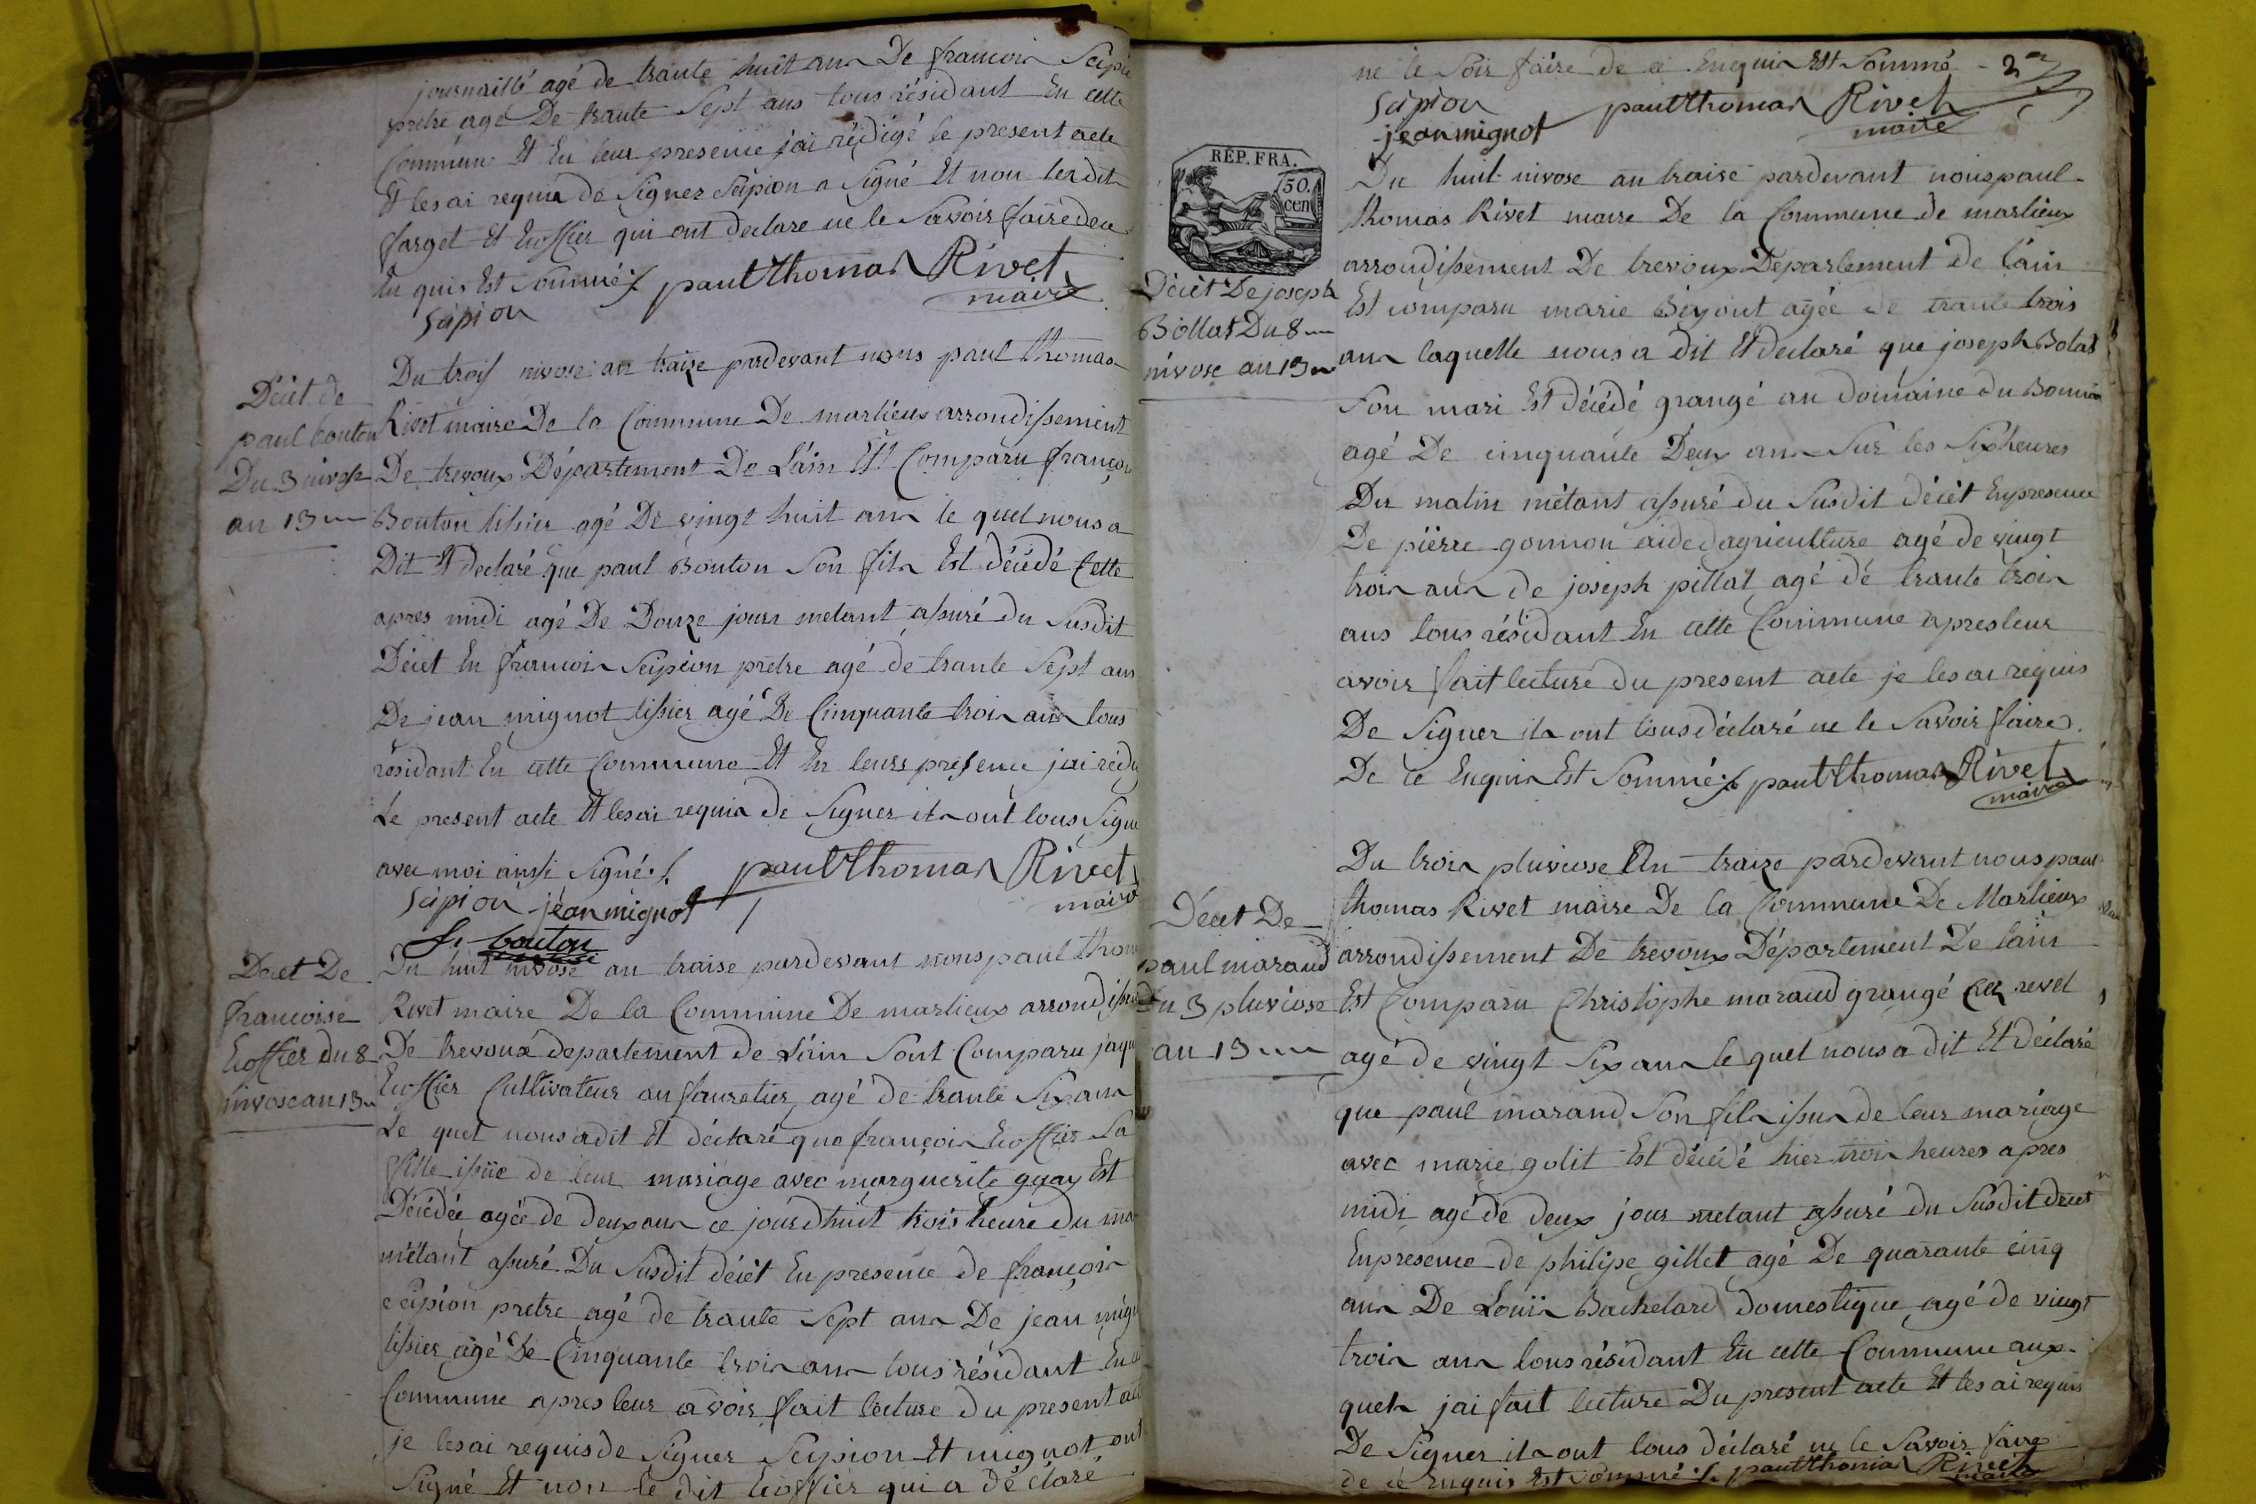 journaillé agé de trante huit ans De francois Scipi
pretre agé De trante Sept ans tous résidant En cette
Commune Et En leur presence j'ai rédigé le present acte
Et les ai requis de Signer Scipion a Signé Et non lesdits
farget Et Ecoffier qui ont declaré ne le Savoir faire de ce
En quis Est Sommé paul thomas Rivet
Scipion maire
Décèt de
paul bouton
Du 3 nivose
an 13
Du trois nivose an traize pardevant nous paul thomas
Rivet maire De la Commune De marlieux arrondissement
De trevoux Département De L'ain Est Comparu françois
Bouton tissier agé De vingt huit ans le quel nous a
Dit Et declaré que paul Bouton Son fils Est décédé Cette
apres midi agé De Douze jours metant assuré du Susdit
Décèt En francois Scipion pretre agé de trante Sept ans
De jean mignot tissier agé De Cinquante trois ans tous
résidant En cette Commune Et En leurs presence jai rédi
Le present acte Et les ai requis de Signer ils ont tous Signé
avec moi ainsi Signé paul thomas Rivet
Scipion jean mignot maire
f. bouton
Decet De
francoise
Ecoffier du 8
nivose an 13
Du huit nivose an traise pardevant nous paul thom
Rivet maire De la Commune De marlieux arrondisse
De trevoux departement de L'ain Sont Comparu jaqu
Ecoffier Cultivateur au fauretier agé de trante Six ans
Le quel nous a dit Et déclaré que françois Ecoffier Sa
fille issüe de leur mariage avec marguerite guay Est
Décédée agée de deux ans ce jourdhuit trois heure du ma
métant assuré Du Susdit décèt En presence de françois
Scipion pretre agé de trante Sept ans De jean mign
tissier agé De Cinquante trois ans tous résidant En c
Commune apres leur avoir fait lecture du present act
je les ai requis de Signer Scipion Et mignot ont
Signé Et non le dit Ecoffier qui a déclaré
ne le Soir faire de ce Enquis Est Sommé
Scipion paul thomas Rivet
jean mignot maire
RÉP. FRA.
50.
cen
Décèt De joseph
Bollat Du 8
nivose an 13
Du huit nivose an traise pardevant nous paul
thomas Rivet maire De la Commune de marlieux
arrondissement De trevoux Departement De l'ain
Est comparu marie agée de trante trois
ans laquelle nous a dit Et declaré que joseph Bolat
Son mari Est décédé grangé au domaine du
agé De cinquante Deux ans Sur les Six heures
Du matin métant assuré du Susdit décèt En presence
De piërre gonnon aide dagriculture agé de vingt
trois ans de joseph pillat agé dé trante trois
ans tous résidant En cette Commune apres leur
avoir fait lecture du present acte je les ai requis
De Signer ils ont tous déclaré ne le Savoir faire
De ce Enquis Est Sommé paul thomas Rivet
maire
Décet De
paul maraud
Du 3 pluviose
an 13
Du trois pluviose An traize pardevant nous paul
thomas Rivet maire De la Commune De Marlieux
arrondissement De trevoux Département De l'ain
Est Comparu Christophe maraud grangé revel
agé de vingt Six ans le quel nous a dit Et déclaré
que paul maraud Son fils issus de leur mariage
avec marie golit Est décédé hier trois heures apres
midi agé de deux jour metant assuré du Susdit decet
En presence de philipe gillet agé De quarante cinq
ans De Louïs Bachelard domestique agé de vingt
trois ans tous résidant En cette Commune aux
quels jai fait lecture Du present acte Et les ai requis
De Signer ils ont tous déclaré ne le Savoir faire
de ce Enquis Est Sommé paul thomas Rivet
maire